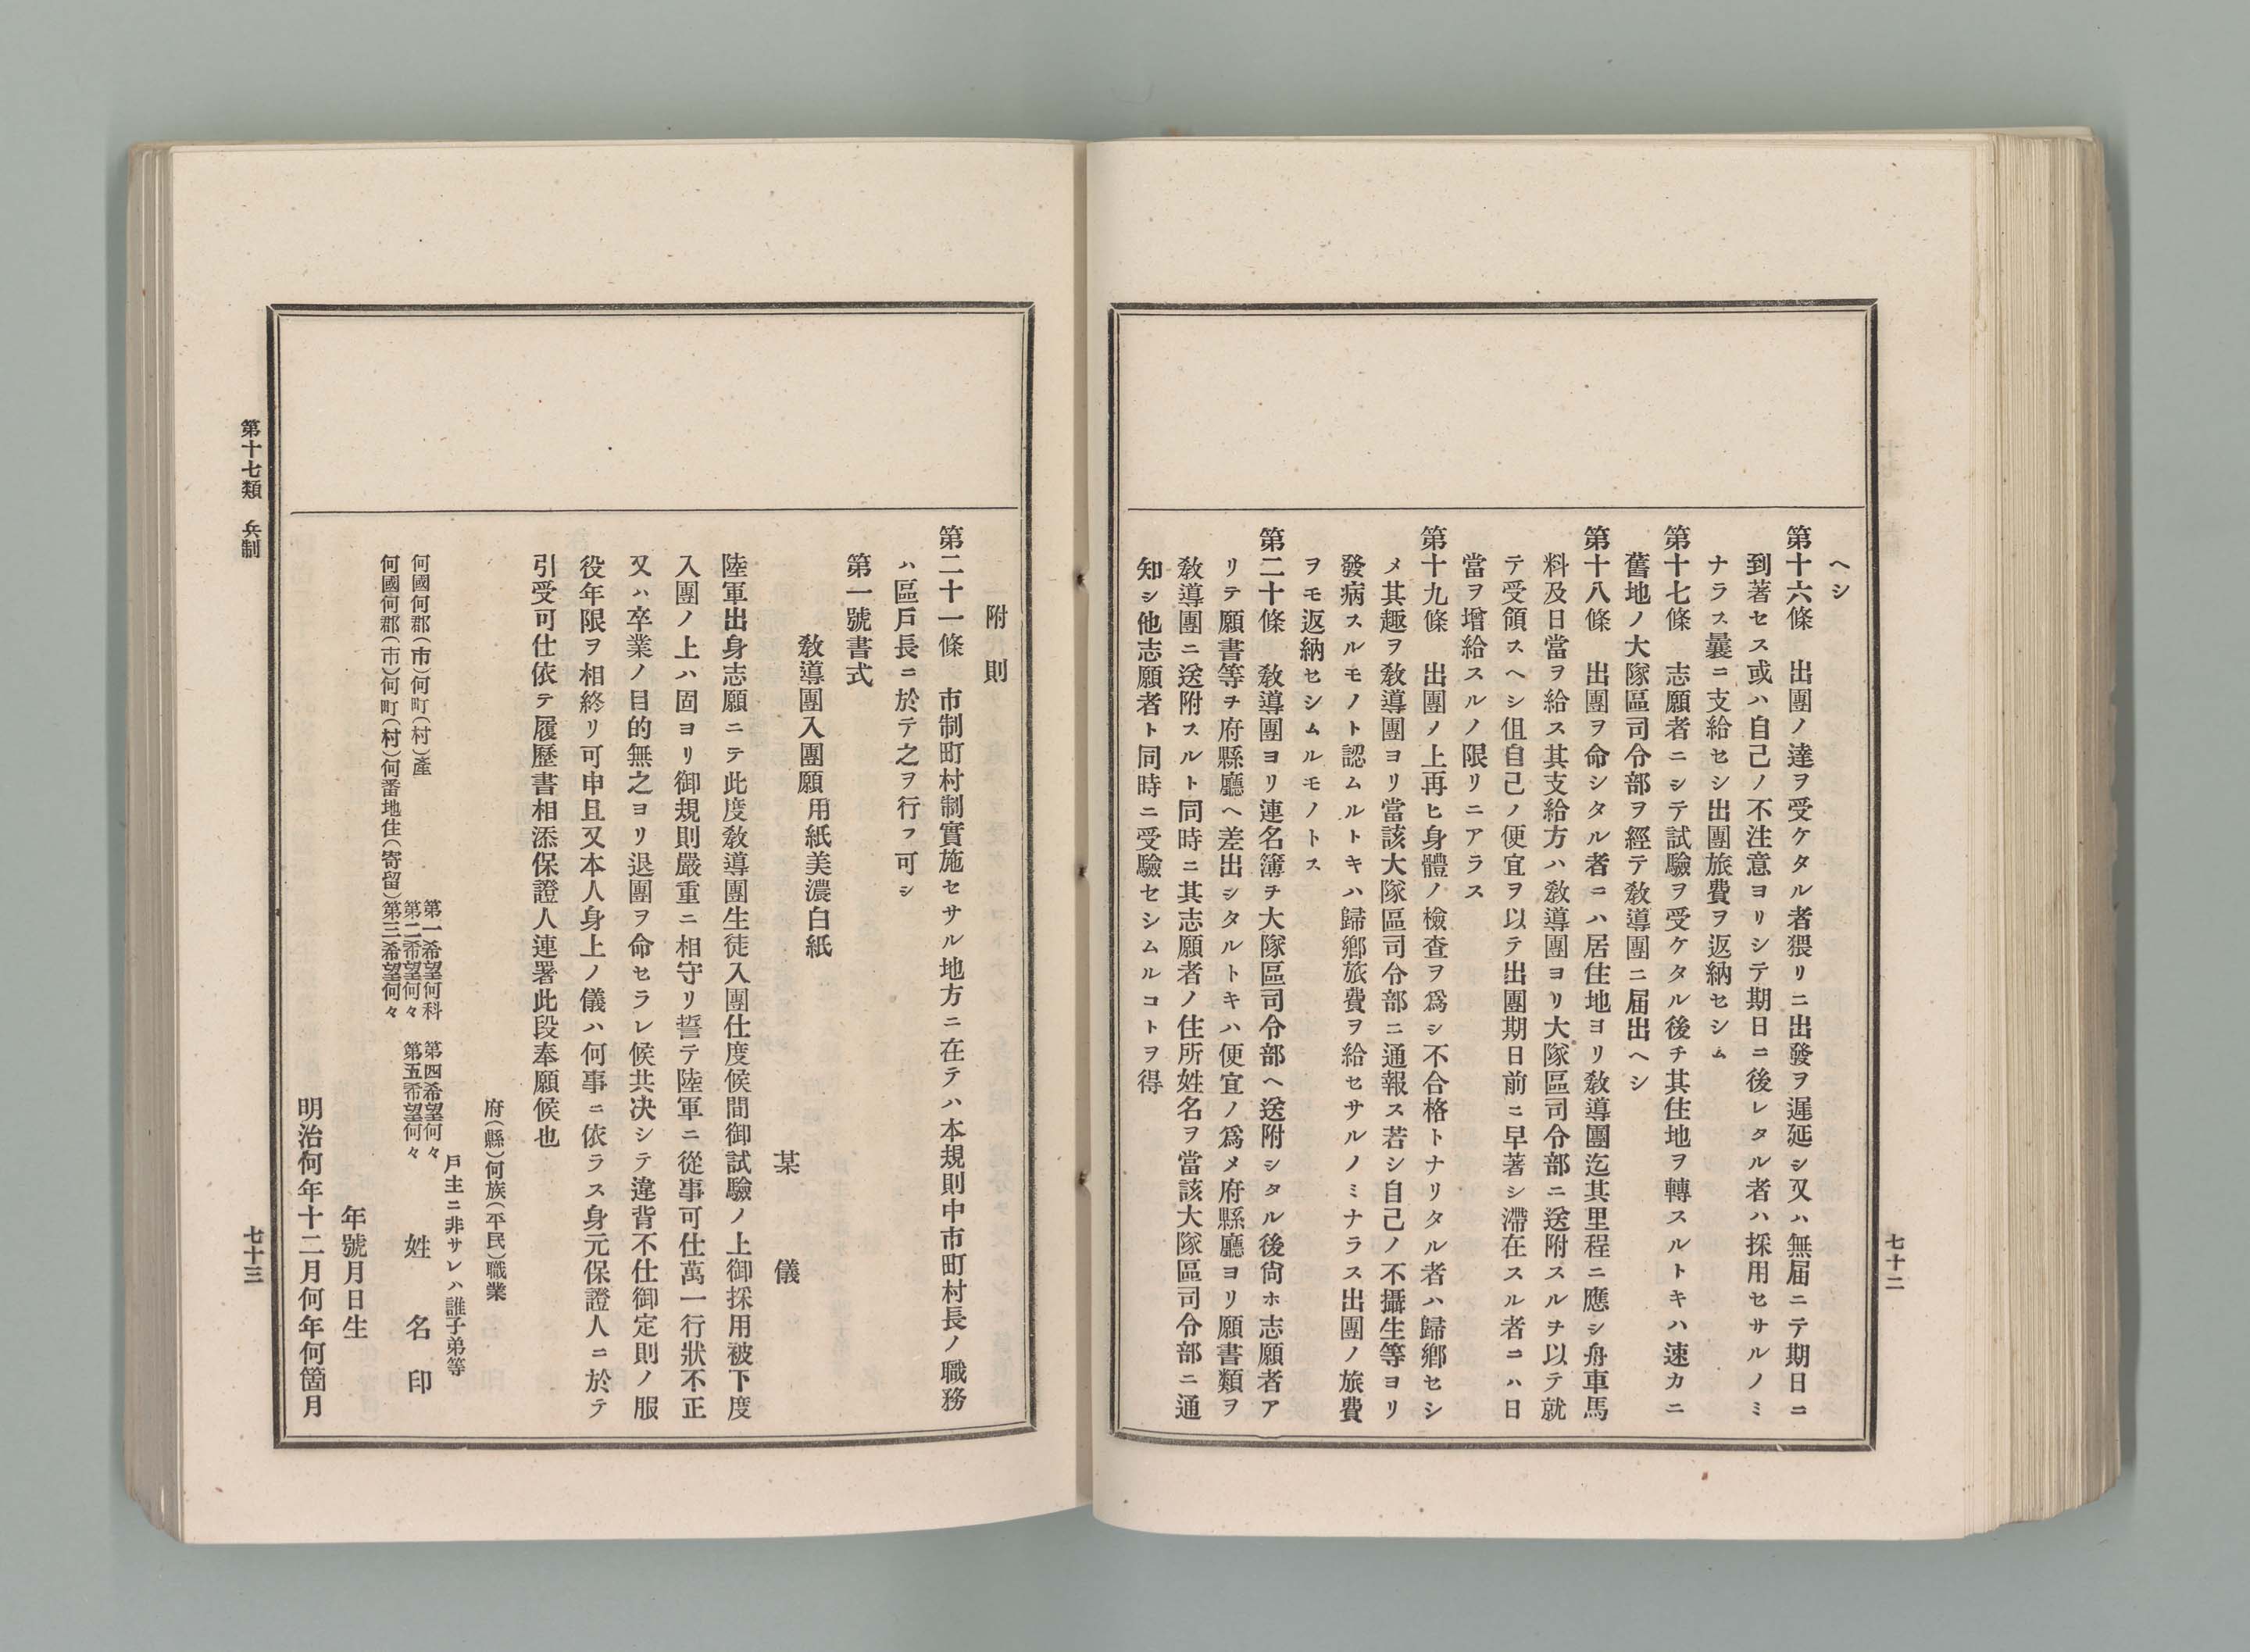 七十二
ヘシ
第十六條　出團ノ達ヲ受ケタル者猥リニ出發ヲ遲延シ又ハ無届ニテ期日ニ
到著セス或ハ自己ノ不注意ヨリシテ期日ニ後レタル者ハ採用セサルノミ
ナラス曩ニ支給セシ出團旅費ヲ返納セシム
第十七條　志願者ニシテ試驗ヲ受ケタル後チ其住地ヲ轉スルトキハ速カニ
舊地ノ大隊區司令部ヲ經テ敎導團ニ届出ヘシ
第十八條　出團ヲ命シタル者ニハ居住地ヨリ敎導團迄其里程ニ應シ舟車馬
料及日當ヲ給ス其支給方ハ敎導團ヨリ大隊區司令部ニ送附スルヲ以テ就
テ受領スヘシ伹自己ノ便宜ヲ以テ出團期日前ニ早著シ滯在スル者ニハ日
當ヲ增給スルノ限リニアラス
第十九條　出團ノ上再ヒ身體ノ檢查ヲ爲シ不合格トナリタル者ハ歸鄕セシ
メ其趣ヲ敎導團ヨリ當該大隊區司令部ニ通報ス若シ自己ノ不攝生等ヨリ
發病スルモノト認ムルトキハ歸鄕旅費ヲ給セサルノミナラス出團ノ旅費
ヲモ返納セシムルモノトス
第二十條　敎導團ヨリ連名簿ヲ大隊區司令部ヘ送附シタル後尙ホ志願者ア
リテ願書等ヲ府縣廳ヘ差出シタルトキハ便宜ノ爲メ府縣廳ヨリ願書類ヲ
敎導團ニ送附スルト同時ニ其志願者ノ住所姓名ヲ當該大隊區司令部ニ通
知シ他志願者ト同時ニ受驗セシムルコトヲ得
附則
第二十一條　市制町村制實施セサル地方ニ在テハ本規則中市町村長ノ職務
ハ區戶長ニ於テ之ヲ行フ可シ
第一號書式
敎導團入團願　用紙美濃白紙
某　儀
陸軍出身志願ニテ此度敎導團生徒入團仕度候間御試驗ノ上御採用被下度
入團ノ上ハ固ヨリ御規則嚴重ニ相守リ誓テ陸軍ニ從事可仕萬一行狀不正
又ハ卒業ノ目的無之ヨリ退團ヲ命セラレ候共决シテ違背不仕御定則ノ服
役年限ヲ相終リ可申且又本人身上ノ儀ハ何事ニ依ラス身元保證人ニ於テ
引受可仕依テ履歷書相添保證人連署此段奉願候也
府(縣)何族(平民)職業
戶主ニ非サレハ誰子弟等
何國何郡(市)何町(村)產
何國何郡(市)何町(村)何番地住(寄留)
第一希望何科
第二希望何々
第三希望何々
第四希望何々
第五希望何々
姓名印
年號月日生
明治何年十二月何年何箇月
第十七類　兵制
七十三